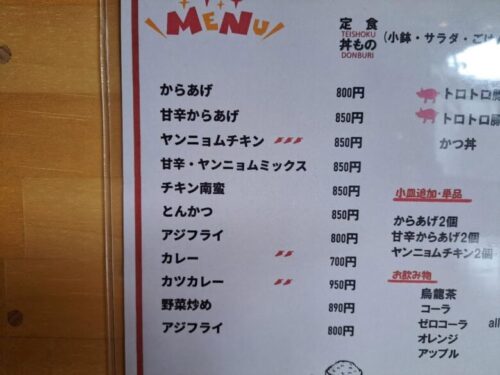 MENU
定食
TEISHOKU
丼もの
DONBURI
(小鉢・サラダ・ごは
からあげ 800円
甘辛からあげ 850円
ヤンニョムチキン 850円
甘辛・ヤンニョムミックス 850円
チキン南蛮 850円
とんかつ 850円
アジフライ 800円
カレー 700円
カツカレー 950円
野菜炒め 890円
アジフライ 800円
トロトロ豚
トロトロ豚
かつ丼
小皿追加・単品
からあげ2個
甘辛からあげ2個
ヤンニョムチキン2個
お飲み物
烏龍茶
コーラ
ゼロコーラ all
オレンジ
アップル